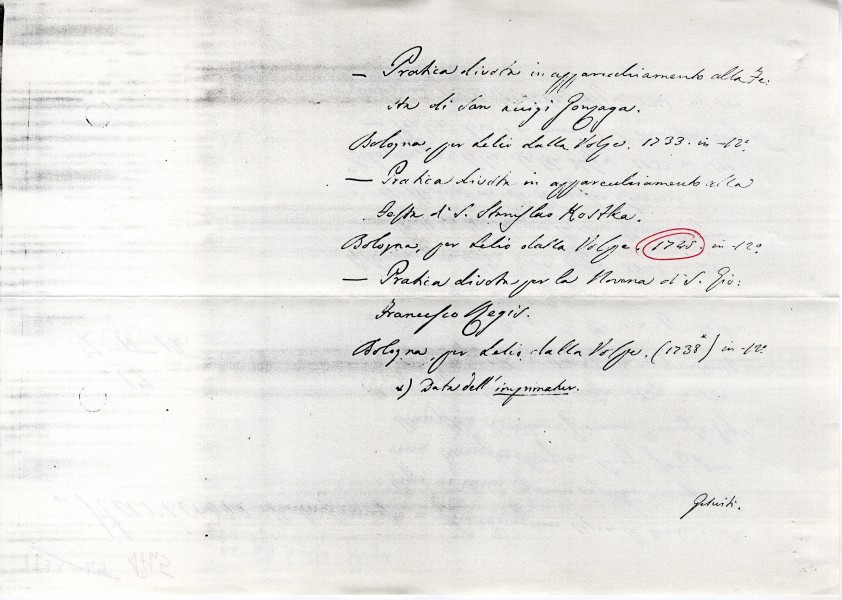 — Pratica divota in apparecchiamento alla Fe:
sta di San Luigi Gonzaga.
Bologna, per Lelio dalla Volpe. 1733. in-12º
— Pratica divota in apparecchiamento alla
Festa di S. Stanislao Kostka.
Bologna, per Lelio dalla Volpe. in-12º
— Pratica divota per la Novena di S. Gio:
Francesco Regis.
Bologna, per Lelio dalla Volpe. (1738*) in-12º
*) Data dell'imprimatur.
Gesuiti.